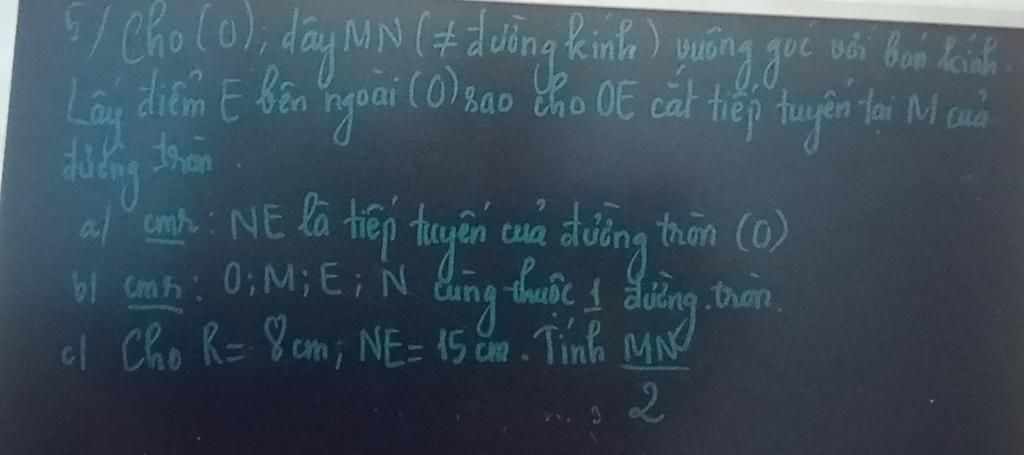 5/ Cho (O); dây MN (≠ đường kính) vuông góc với bán kính.
Lấy điểm E bên ngoài (O) sao cho OE cắt tiếp tuyến tại M của
đường tròn.
a/ cmr: NE là tiếp tuyến của đường tròn (O)
b/ cmr: O; M; E; N cùng thuộc 1 đường tròn.
c/ Cho R = 8cm; NE = 15 cm. Tính MN/2